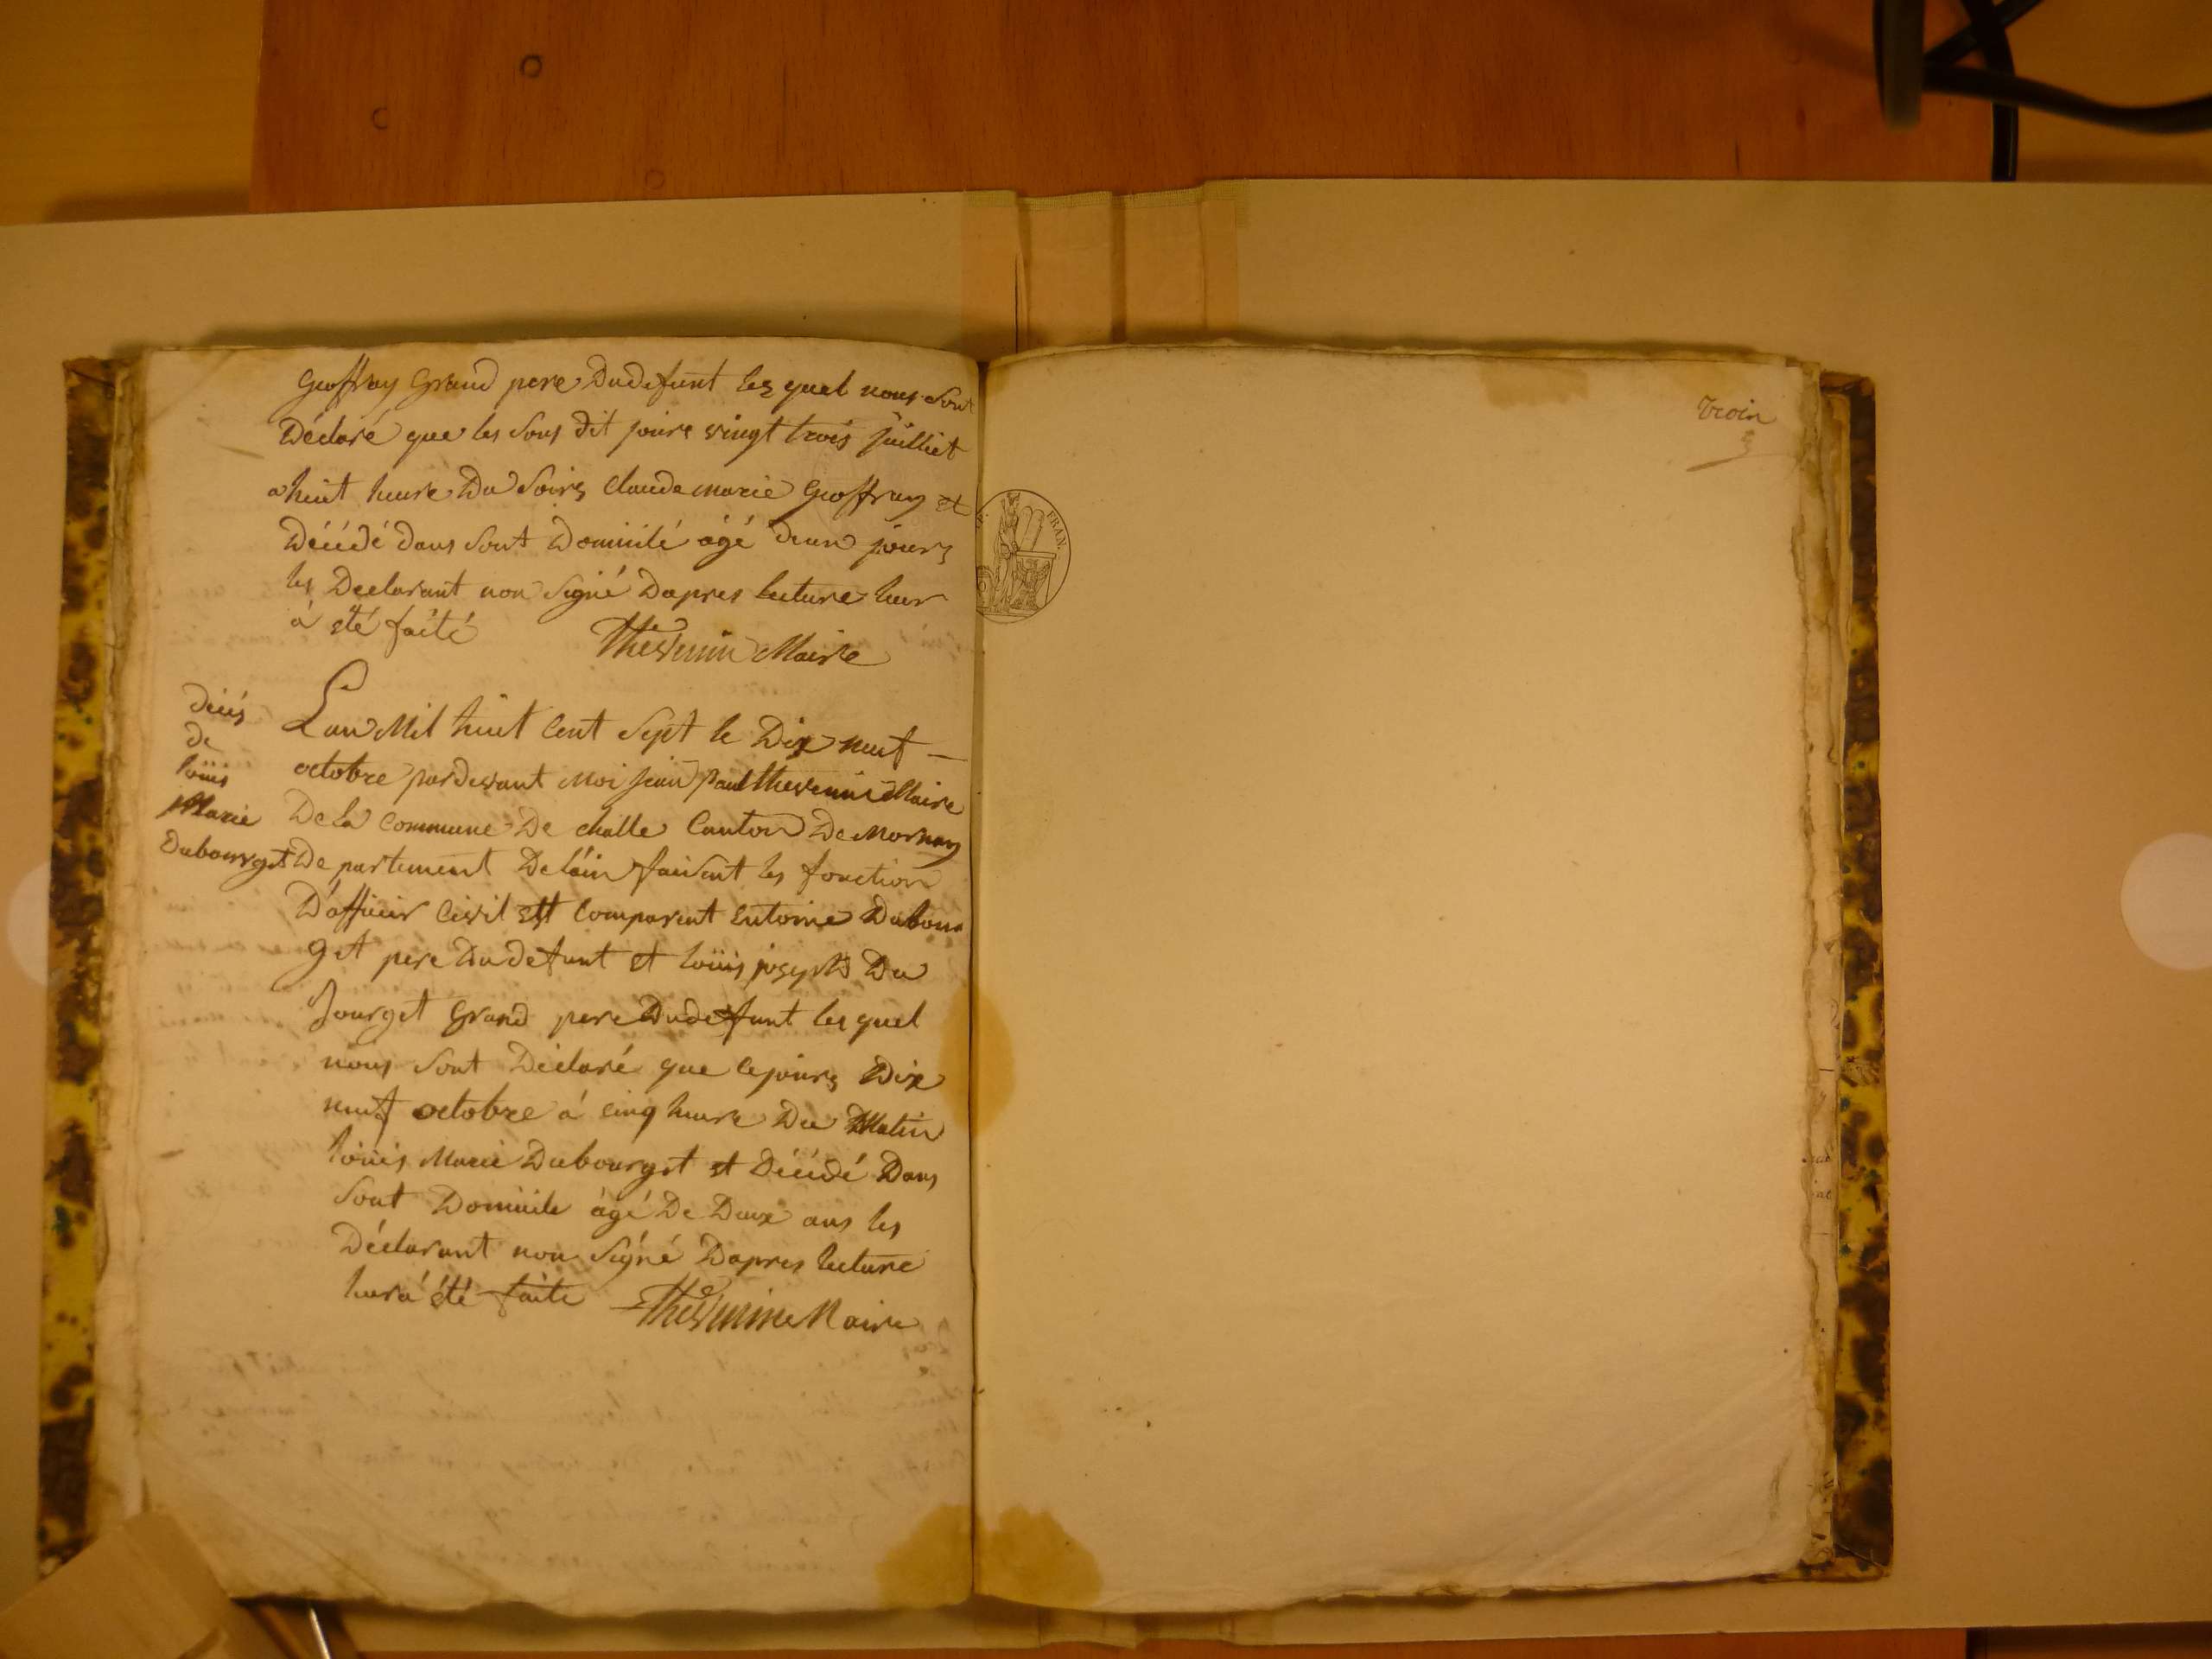 Geoffray Grand pere Dudefunt les quel nous sont
Déclaré que les sous dit jours vingt trois juilliet
a huit heure Du soirs Claude marie Geoffray et
Décédé dans sont Domicilé ágé d'eun jours
les Declarant non Signé Dapres lecture leur
à été faité
Thevenin Maire
décés
de
loüis
Marie
Dubourget
Lan Mil huit Cent Sept le Dix neuf —
octobre pardevant Moi jean Paul thevenin Maire
De la Commune De challe Canton De Mornay
De partement De l'ain faisant les fonction
D'afficier Civil Est Comparent entoine Dubour
get pere Du defunt et loüis joseph Du
bourget Grand pere Dudefunt les quel
nous sont Déclaré que ce jours Dix
neuf octobre á cinq heure Du Matin
loüis Marie Dubourget et Décédé Dans
Sont Domicile ágé De Deux ans les
Déclarant non Signé Dapres lecture
leur á été faite
Thevenin Maire
FRAN.
troin